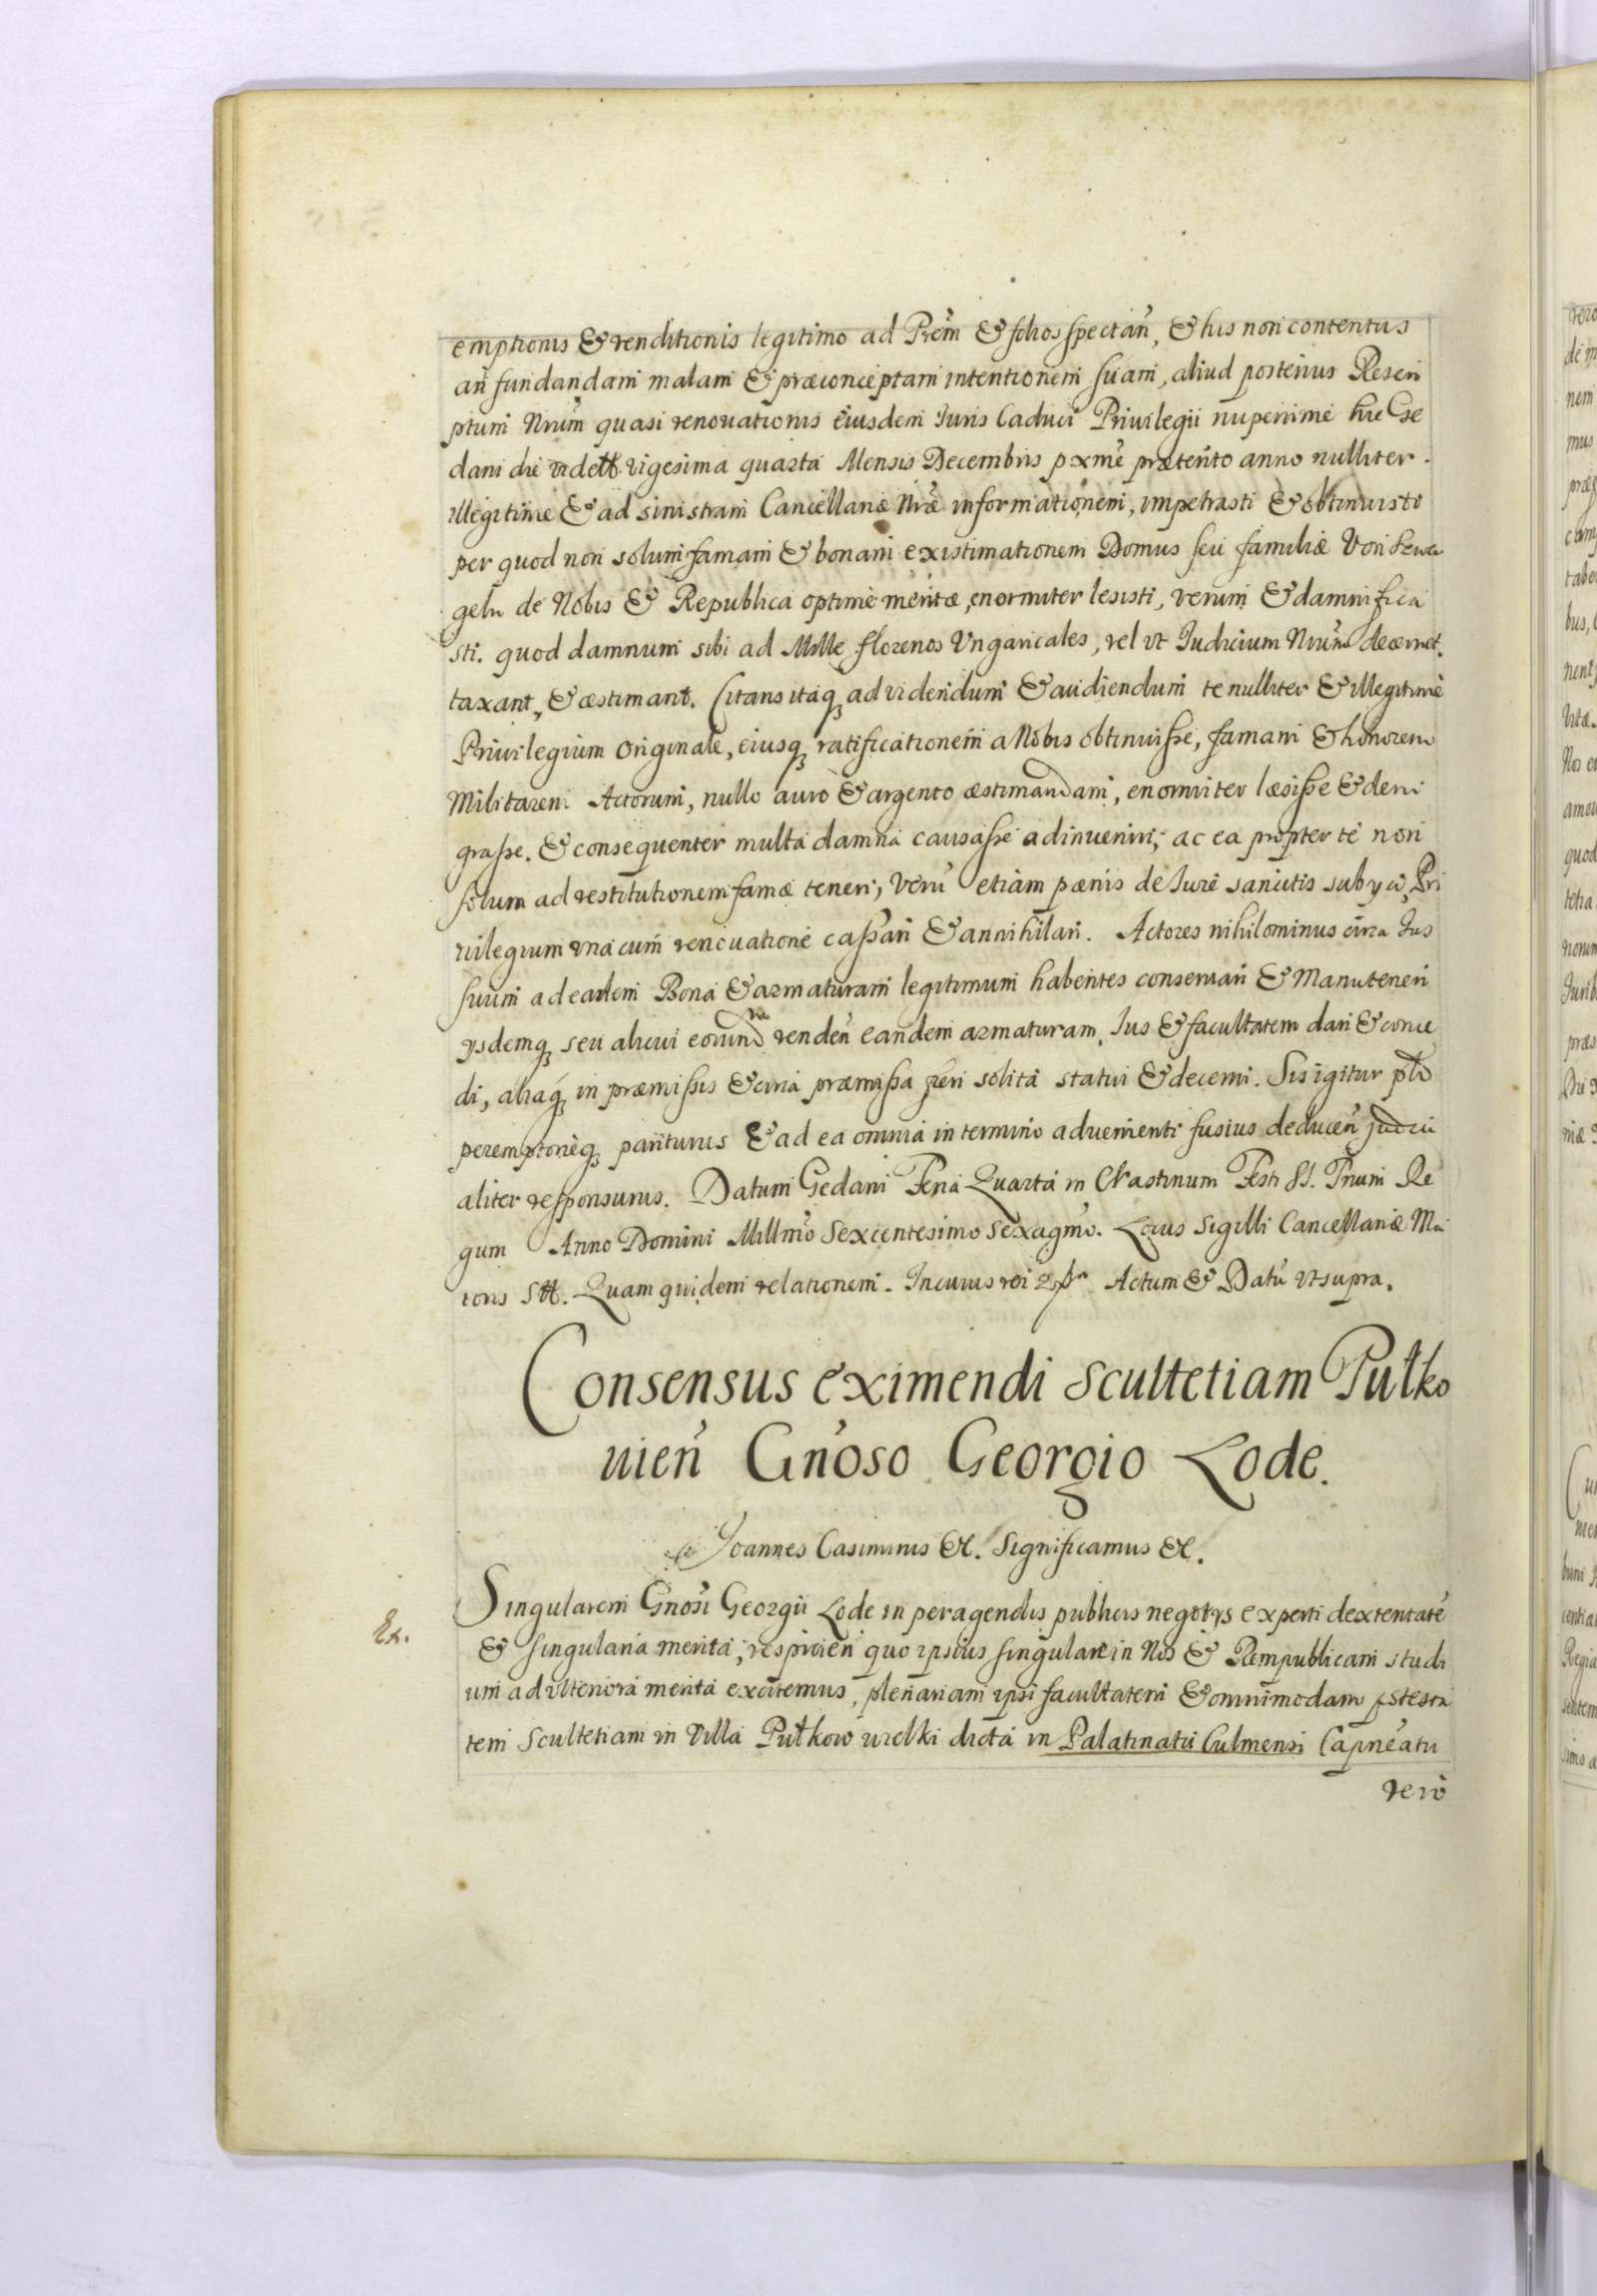 emptionis & venditionis legitimo ad Prem̃ & filios spectañ, & his non contentus
añ fundandam malam & præconceptam intentionem suam, aliud posterius Rescri
ptum Nrum̃ quasi renouationis eiusdem Iuris Caduci Priuilegii nuperrime hic Ge
dani die vidett vigesima quarta Mensis Decembris pxmẽ præterito anno nulliter
illegitime & ad sinistram Cancellariæ Nræ informationem, impetrasti & obtinuisti
per quod non solum famam & bonam existimationem Domus seu familiæ Von
geln de Nobis & Republica optimè meritæ, enormiter lesisti, verum & damnifica
sti. quod damnum sibi ad Mille florenos Vngaricales, vel vt Iudicium Nrum̃ decernet.
taxant, & æstimant. Citans itaq; ad videndum & audiendum te nulliter & illegitimè
Priuilegium originale, eiusq; ratificationem a Nobis obtinuisse, famam & honorem
Militarem Actorum, nullo auro & argento æstimandam, enormiter læsisse & deni
grasse. & consequenter multa damna causasse adinueniri; ac ea propter te non
solum ad restitutionem famæ teneri, verũ etiam pænis de Iure sancitis subyci, Pri
uilegium vna cum renouatione cassari & annihilari. Actores nihilominus circa Ius
suum ad eadem Bona & armaturam legitimum habentes conseruari & Manuteneri
ysdemq; seu alicui eorund vendeñ eandem armaturam, Ius & facultatem dari & conce
di, aliaq; in præmissis & circa præmissa fieri solita statui & decerni. Sis igitur ptt
peremptorieq; pariturus & ad ea omnia in termino aduenienti fusius deduceñ judici
aliter responsurus. Datum Gedani Feria Quarta in Crastinum Festi SS. Trium Re
gum Anno Domini Millmo Sexcentesimo Sexagmo. Locus Sigilli Cancellariæ Ma
ioris Stt. Quam quidem relationem. In cuius rei Actum & Datũ vt supra.
Consensus eximendi scultetiam Pułko
uieñ Gnõso Georgio Lode.
Joannes Casimirus &c. Significamus &c.
Ex.
Singularem Gnosi Georgii Lode in peragendis publicis negotys experti dexteritatẽ
& singularia merita, respicieñ quo ipsius singulare in Nos & Rempublicam studi
um ad vlteriora merita excitemus, plenariam ipsi facultatem & omnimodam potesta
tem Scultetiam in Villa Pułkow wielki dicta in Palatinatu Culmensi Capneatu
vero